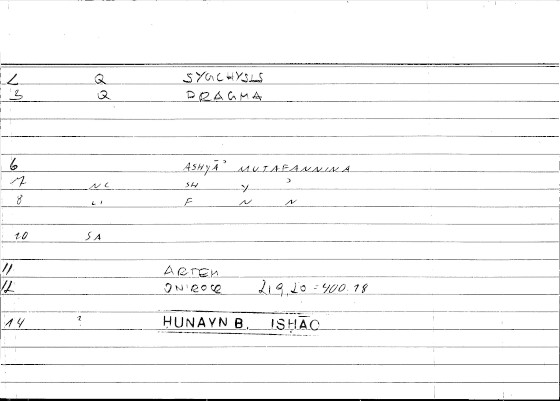 2 Q SYGCHYSIS
3 Q DRAGMA
6 ASHYĀʾ MUTAFANNINA
7 NC SH Y ʾ
8 LI F N N
10 SA
11 ARTEM
12 ONIROCR 219,20 = 400.18
14 ? HUNAYN B. ISHĀQ